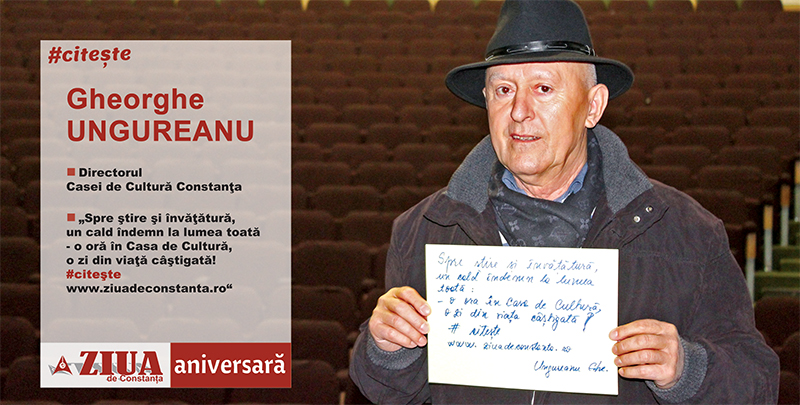 #citește
Gheorghe
UNGUREANU
Directorul
Casei de Cultură Constanţa
„Spre ştire şi învăţătură,
un cald îndemn la lumea toată
- o oră în Casa de Cultură,
o zi din viaţă câştigată!
#citeşte
www.ziuadeconstanta.ro“
ZIUA
de Constanţa
aniversară
Spre știre si învătătură,
un cald îndemn la lumea
toată:
- o oră în Casa de Cultură,
o zi din viața câștigată!
# citește
www. ziuadeconstanta.ro
Ungureanu Ghe.